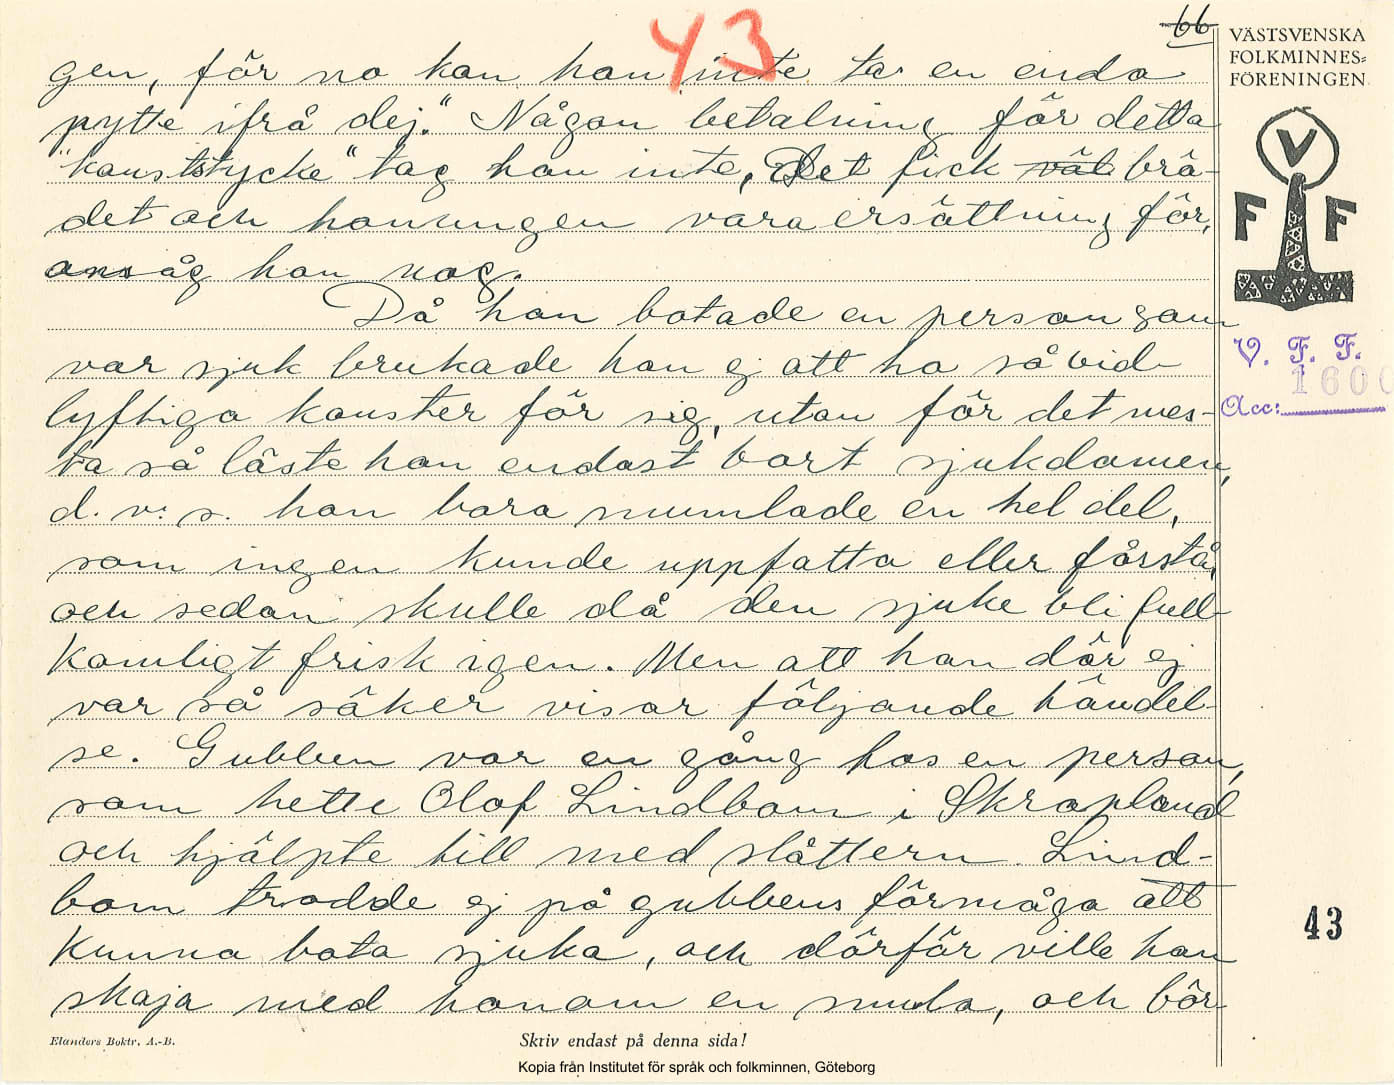 43
66
gen, för no kan han inte ta en enda
pytte ifrå dej." Någon betalning för detta
"konststycke" tog han inte, Det fick väl brä-
det och honungen vara ersättning för,
ansåg han nog.
Då han botade en person som
var sjuk brukade han ej att ha så vid-
lyftiga konster för sig, utan för det mes-
ta så läste han endast bort sjukdomen,
d. v. s. han bara mumlade en hel del,
som ingen kunde uppfatta eller förstå,
och sedan skulle då den sjuke bli full-
komligt frisk igen. Men att han där ej
var så säker visar följande händel-
se. Gubben var en gång hos en person,
som hette Olof Lindbom i Skrapland
och hjälpte till med slåttern. Lind-
bom trodde ej på gubbens förmåga att
kunna bota sjuka, och därför ville han
skoja med honom en smula, och bör-
VÄSTSVENSKA
FOLKMINNES-
FÖRENINGEN
V
F F
V. F. F.
1600
Acc:
43
Elanders Boktr. A.-B.
Skriv endast på denna sida!
Kopia från Institutet för språk och folkminnen, Göteborg